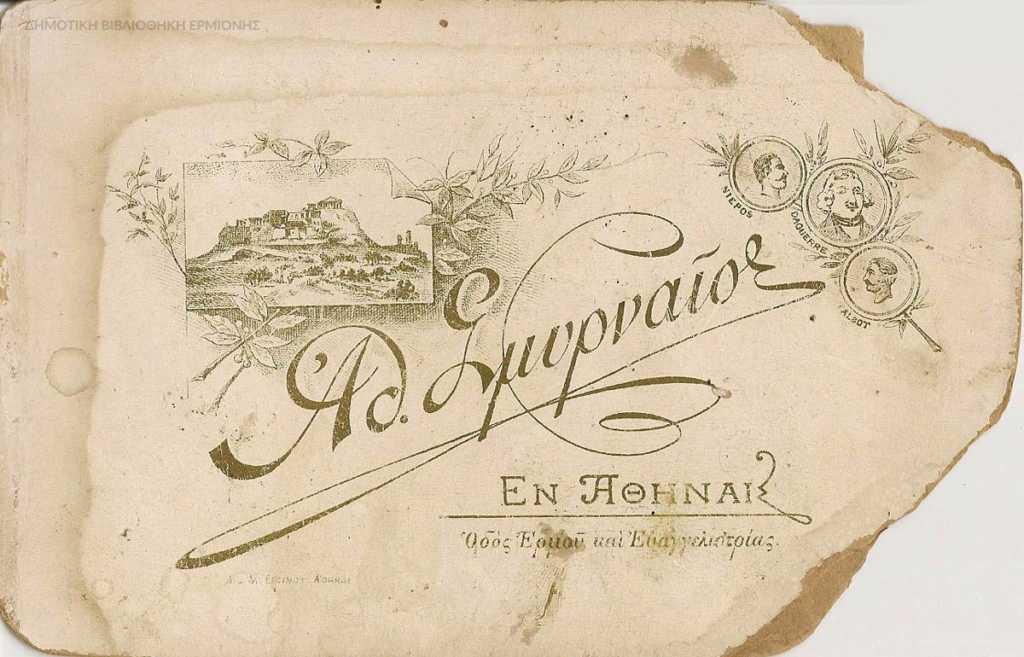 ΔΗΜΟΤΙΚΗ ΒΙΒΛΙΟΘΗΚΗ ΕΡΜΙΟΝΗΣ
ΝΙΕΡΟΣ
DAGUERRE
ALBOT
Ἀδ. Σμυρναῖος
ΕΝ ΑΘΗΝΑΙΣ
Ὁδὸς Ἑρμοῦ καὶ Εὐαγγελιστρίας.
ΑΘΗΝΑΙ